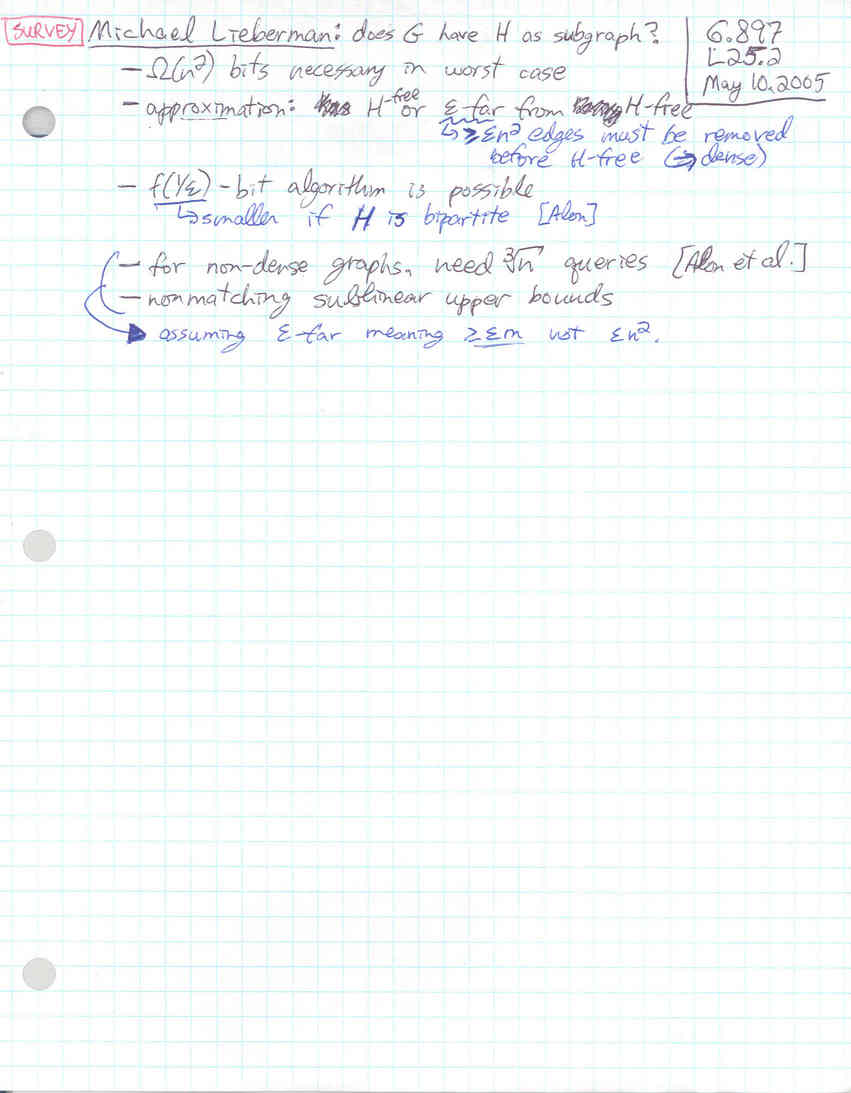 SURVEY Michael Lieberman: does G have H as subgraph?
6.897
L25.2
May 10, 2005
– Ω(n²) bits necessary in worst case
– approximation: H-free or ε-far from H-free
↳ ≥ εn² edges must be removed
before H-free (⇒ dense)
– f(1/ε)-bit algorithm is possible
↳ smaller if H is bipartite [Alon]
– for non-dense graphs, need ∛n queries [Alon et al.]
– nonmatching sublinear upper bounds
assuming ε-far meaning ≥ εm not εn².